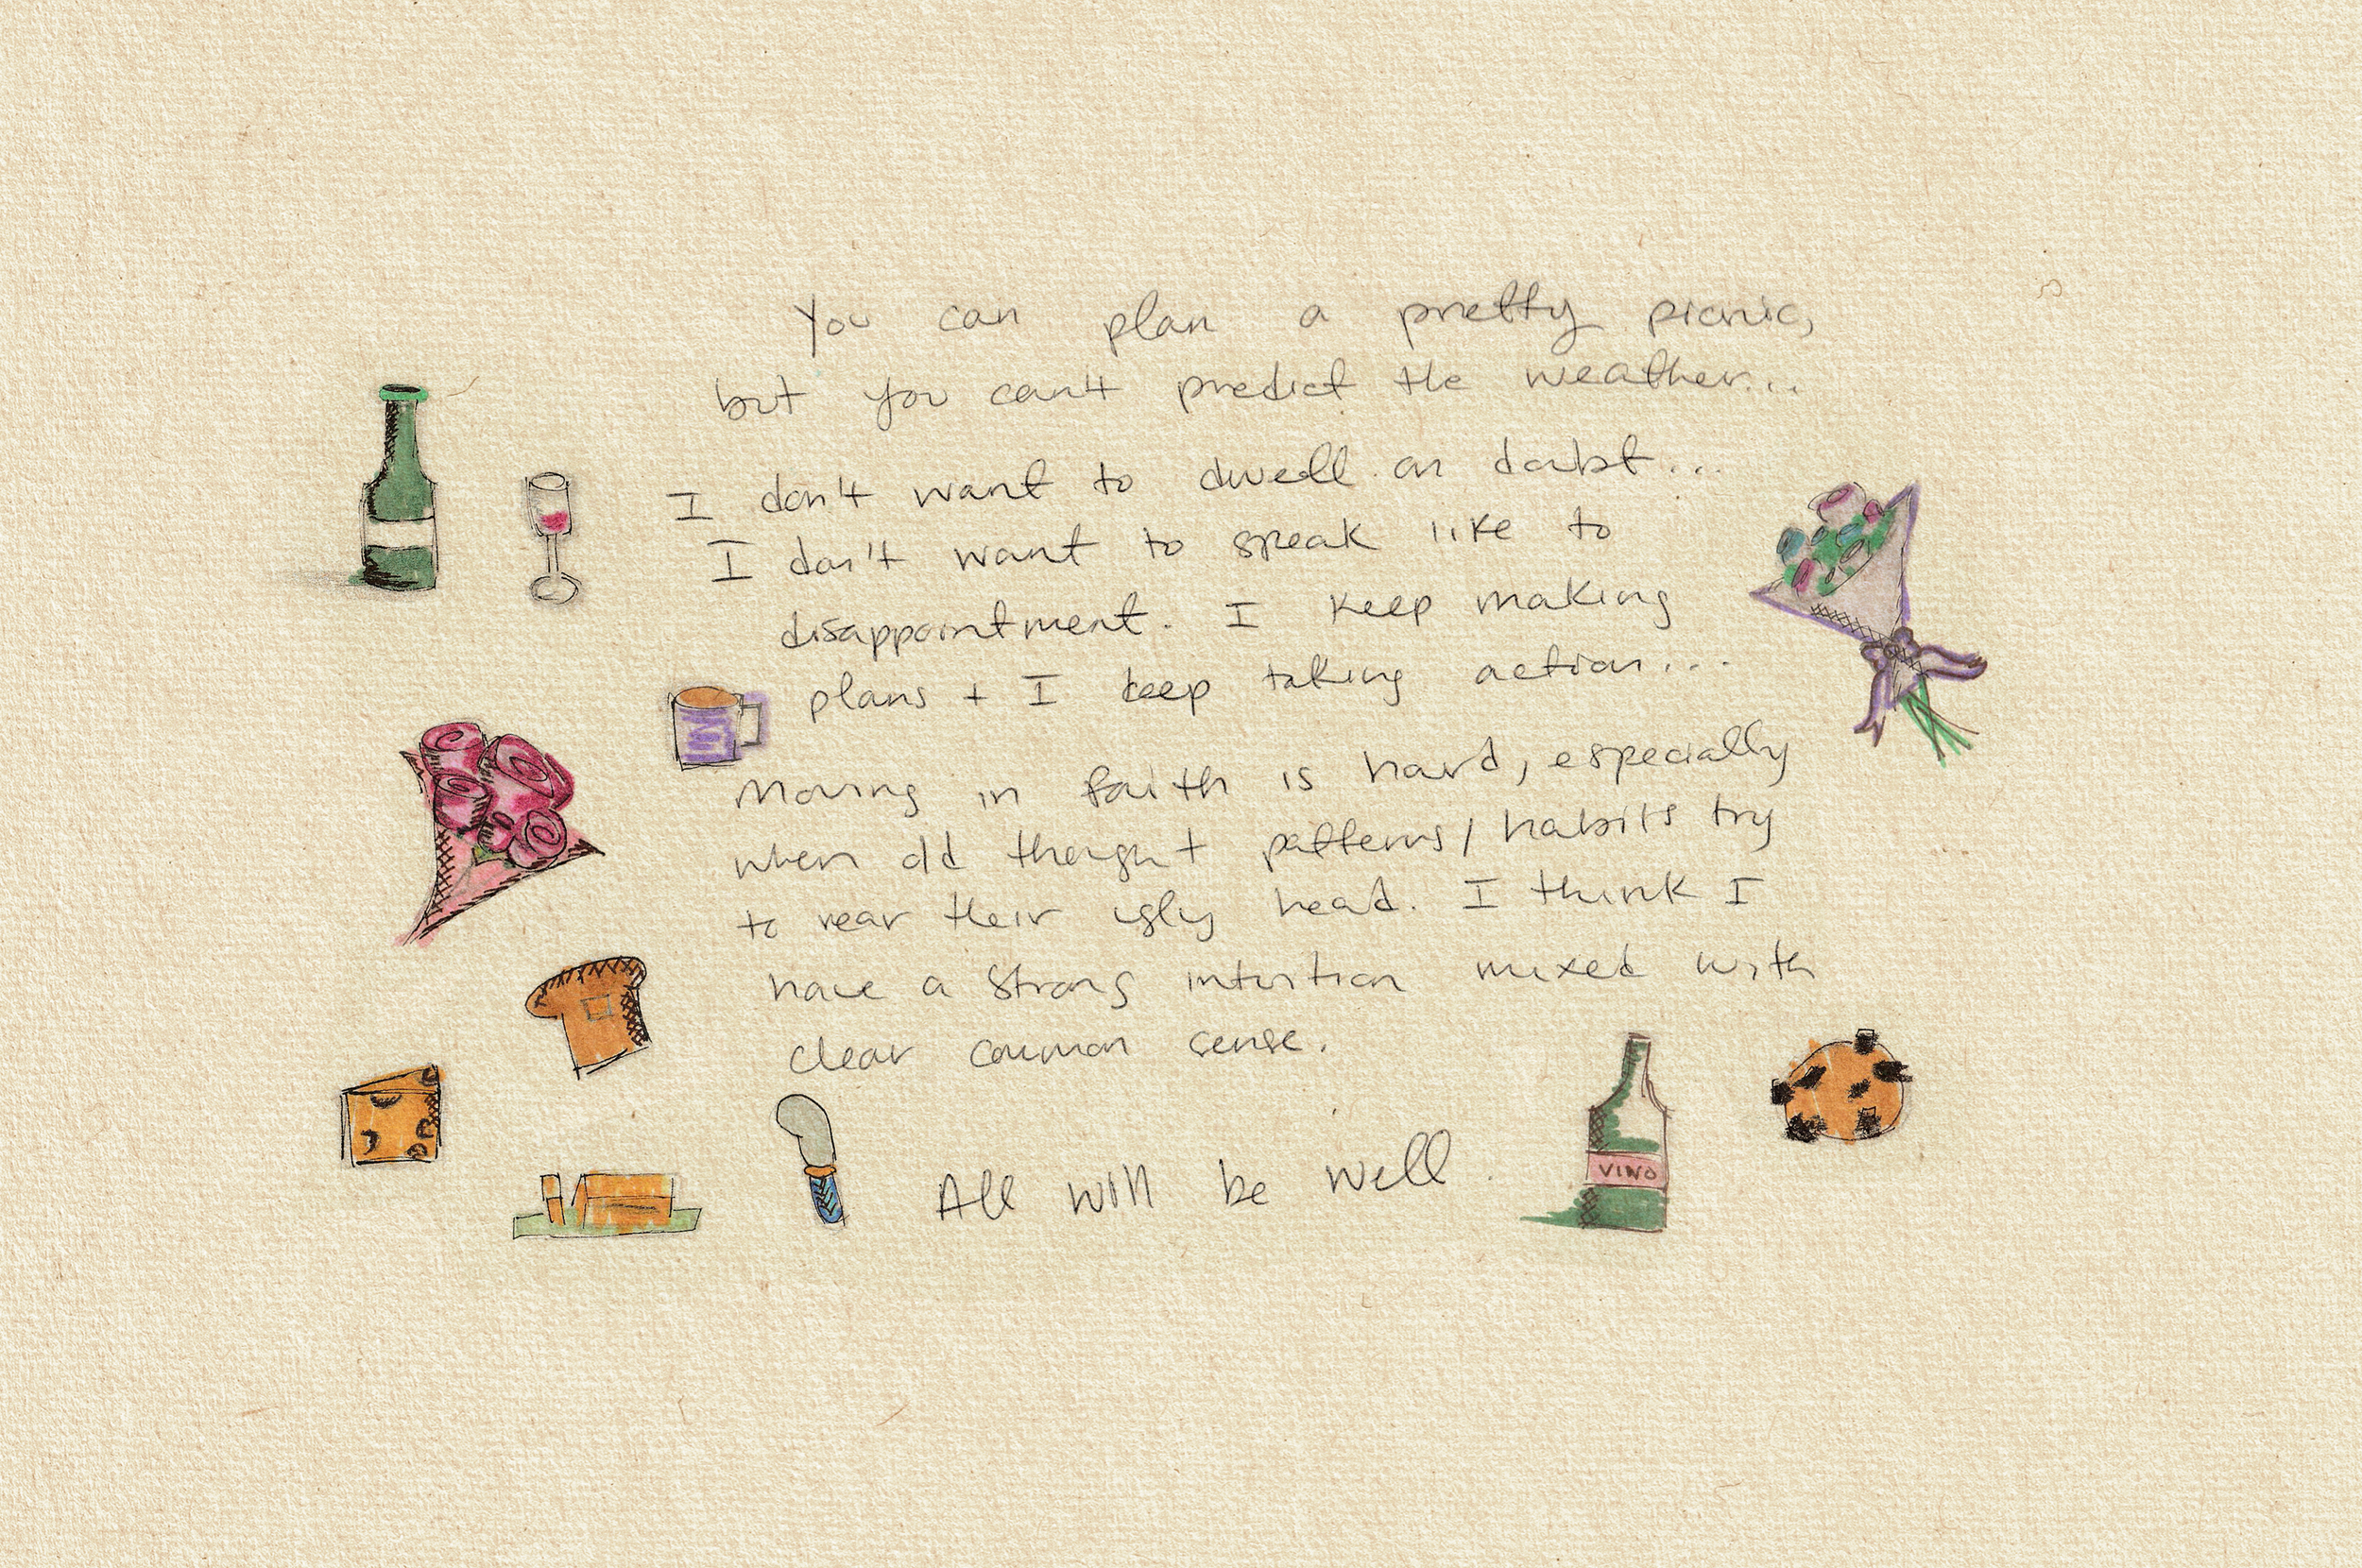 You can plan a pretty picnic,
but you can't predict the weather...
I don't want to dwell on doubt...
I don't want to speak like to
disappointment. I keep making
plans + I keep taking action...
Moving in faith is hard, especially
when old thought patterns/habits try
to rear their ugly head. I think I
have a strong intuition mixed with
clear common sense.
All will be well.
VINO